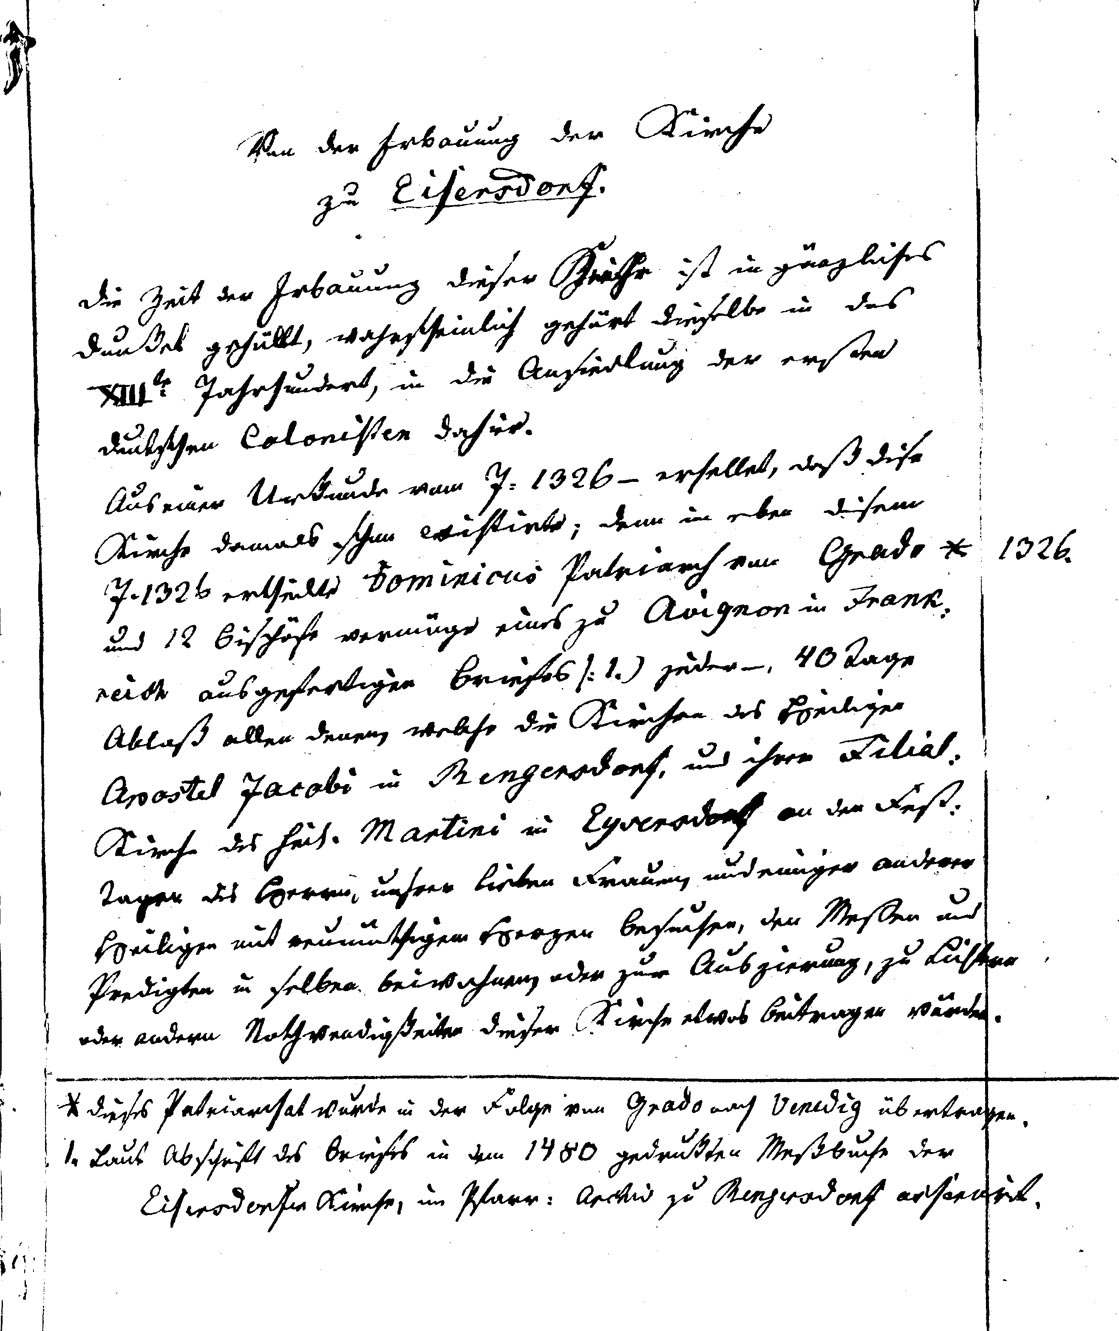 Von der Erbauung der Kirche
zu Eisersdorf.
Die Zeit der Erbauung dieser Kirche ist in gänzliches
Dunkel gehüllt, wahrscheinlich gehört dieselbe in das
XIIIte Jahrhundert, in die Ansiedlung der ersten
deutschen Colonisten dahier.
Aus einer Urkunde vom J: 1326 – erhellet, daß diese
Kirche damals schon existirte; denn in eben diesem
J. 1326 ertheilte Dominicus Patriarch von Grado * 1326.
und 12 Bischöfe vermöge eines zu Avignon in Frank:
reich ausgefertigten Briefes (: 1.) jeder –, 40 Tage
Ablaß allen denen, welche die Kirchen des Heiligen
Apostel Jacobi in Rengersdorf, und ihrer Filial:
Kirche des heil. Martini in Eyversdorf an den Fest:
Tagen des Herrn, unserer lieben Frauen, und einiger anderer
Heiligen mit reumüthigem Herzen besuchen, den Meßen und
Predigten in selben beiwohnen, oder zur Auszierung, zu Lichtern
oder andern Nothwendigkeiten dieser Kirche etwas beitragen würden.
* Dieses Patriarchat wurde in der Folge von Grado nach Venedig übertragen.
1. Laut Abschrift des Briefes in dem 1480 gedrukten Meßbuche der
Eisersdorfer Kirche, im Pfarr: Archiv zu Rengersdorf